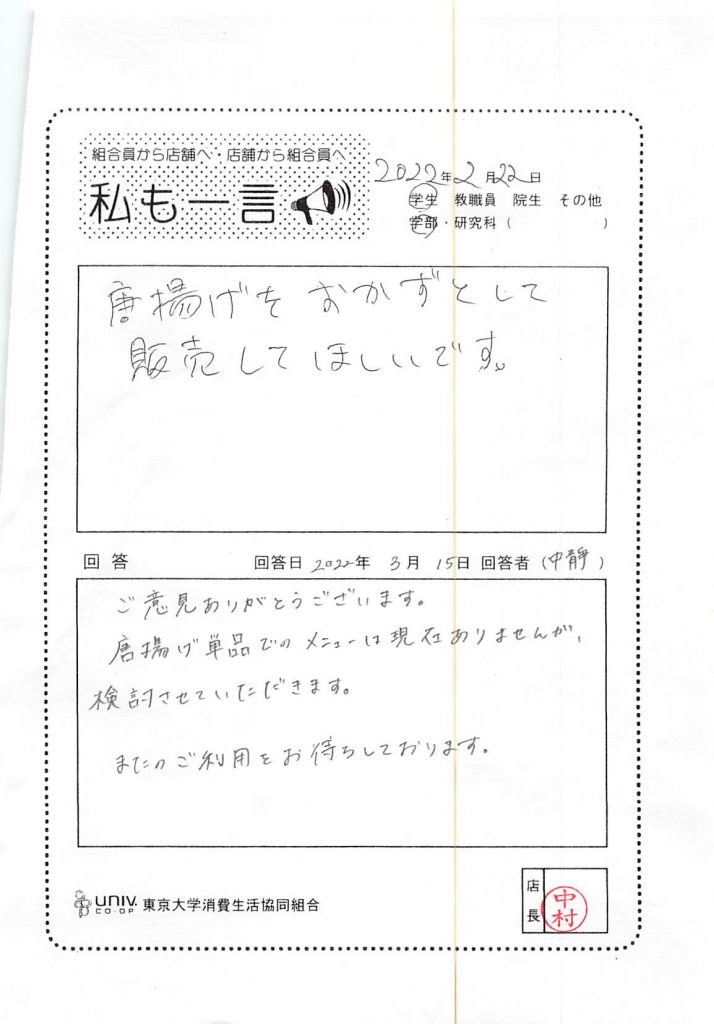 組合員から店舗へ・店舗から組合員へ
私も一言
2022年2月22日
学生 教職員 院生 その他
学部・研究科（ ）
唐揚げをおかずとして
販売してほしいです。
回答 回答日 2022年 3月 15日 回答者（中靜）
ご意見ありがとうございます。
唐揚げ単品でのメニューは現在ありませんが、
検討させていただきます。
またのご利用をお待ちしております。
UNIV. CO-OP 東京大学消費生活協同組合
店長
中村